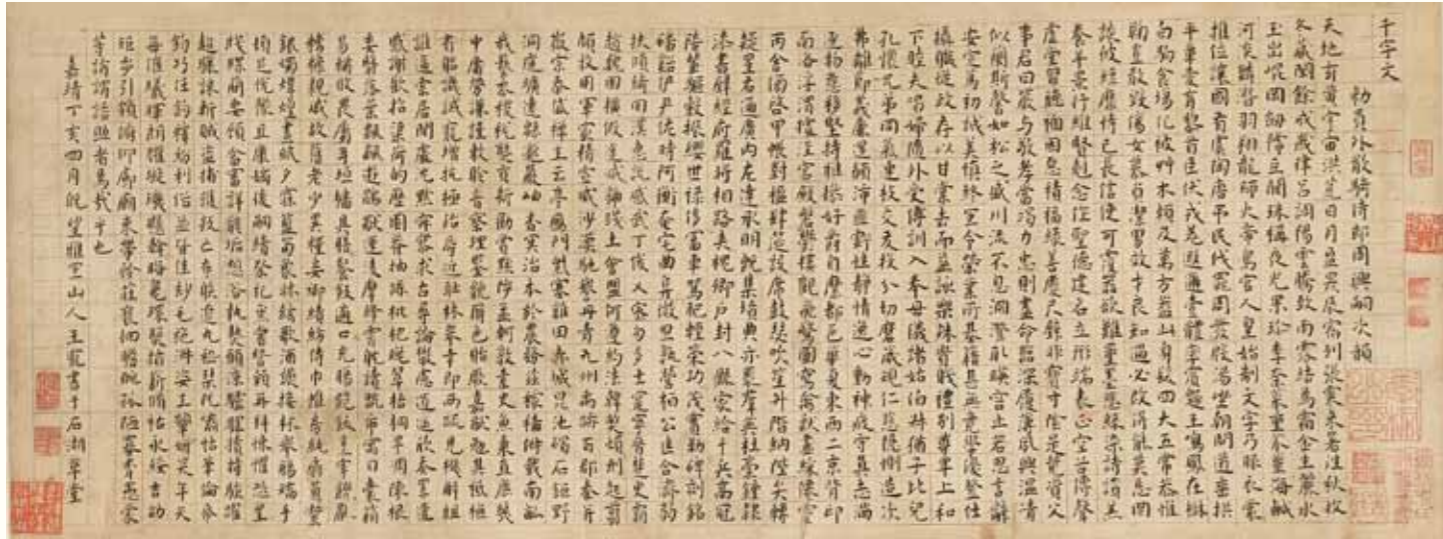 千字文
勅員外散騎侍郎周興嗣次韻
天地玄黄宇宙洪荒日月盈昃辰宿列張寒来暑往秋收
冬藏閏餘成歲律吕調陽雲騰致雨露結為霜金生麗水
玉出崐岡劒號巨闕珠稱夜光果珍李柰菜重芥薑海鹹
河淡鱗潛羽翔龍師火帝鳥官人皇始制文字乃服衣裳
推位讓國有虞陶唐弔民伐罪周發殷湯坐朝問道垂拱
平章愛育黎首臣伏戎羌遐邇壹體率賓歸王鳴鳳在樹
白駒食場化被艸木賴及萬方蓋此身髮四大五常恭惟
鞠養豈敢毀傷女慕貞潔男效才良知過必改得能莫忘罔
談彼短靡恃己長信使可覆器欲難量墨悲絲染詩讚羔
羊景行維賢尅念作聖德建名立形端表正空谷傳聲
虚堂習聽禍因惡積福緣善慶尺璧非寶寸陰是競資父
事君曰嚴与敬孝當竭力忠則盡命臨深履薄夙興温凊
似蘭斯馨如松之盛川流不息淵澄取暎容止若思言辭
安定篤初誠美慎終宜令榮業所基籍甚無竟學優登仕
攝職從政存以甘棠去而益詠樂殊貴賤禮別尊卑上和
下睦夫唱婦隨外受傅訓入奉母儀諸姑伯叔猶子比兒
孔懷兄弟同氣連枝交友投分切磨箴規仁慈隱惻造次
弗離節義廉退顛沛匪虧性静情逸心動神疲守真志滿
逐物意移堅持雅操好爵自縻都邑華夏東西二京背邙
面洛浮渭據涇宫殿盤欝樓觀飛驚圖寫禽獸畫綵仙靈
丙舍傍啓甲帳對楹肆筵設席鼓瑟吹笙升階納陛弁轉
疑星右通廣内左達承明既集墳典亦聚群英杜稾鍾隸
漆書壁經府羅將相路夾槐卿户封八縣家給千兵高冠
陪輦驅轂振纓世禄侈富車駕肥輕策功茂實勒碑刻銘
磻溪伊尹佐時阿衡奄宅曲阜微旦孰營桓公匡合濟弱
扶傾綺迴漢惠説感武丁俊乂密勿多士寔寧晉楚更霸
趙魏困横假途滅虢踐土會盟何遵約法韓弊煩刑起翦
頗牧用軍最精宣威沙漠馳譽丹青九州禹跡百郡秦并
嶽宗泰岱禪主云亭雁門紫塞雞田赤城昆池碣石鉅野
洞庭曠遠緜邈巖岫杳冥治本於農務茲稼穡俶載南畝
我藝黍稷税熟貢新勸賞黜陟孟軻敦素史魚秉直庶幾
中庸勞謙謹敕聆音察理鑒貌辨色貽厥嘉猷勉其祗植
省躬譏誡寵增抗極殆辱近恥林皋幸即兩疏見機解組
誰逼索居閑處沉默寂寥求古尋論散慮逍遥欣奏累遣
慼謝歡招渠荷的歷園莽抽條枇杷晚翠梧桐早凋陳根
委翳落葉飄颻遊鵾獨運凌摩絳霄耽讀翫市寓目囊箱
易輶攸畏屬耳垣墻具膳飡飯適口充腸飽飫烹宰飢厭
糟糠親戚故舊老少異糧妾御績紡侍巾帷房紈扇員潔
銀燭煒煌晝眠夕寐藍笋象牀絃歌酒讌接杯舉觴矯手
頓足悦豫且康嫡後嗣續祭祀烝嘗稽顙再拜悚懼恐惶
牋牒簡要顧答審詳骸垢想浴執熱願凉驢騾犢特駭躍
超驤誅斬賊盗捕獲叛亡布射遼丸嵇琴阮嘯恬筆倫紙
鈞巧任釣釋紛利俗並皆佳妙毛施淑姿工顰妍笑年矢
每催曦暉朗耀璇璣懸斡晦魄環照指薪脩祜永綏吉劭
矩步引領俯仰廊廟束帶矜莊徘徊瞻眺孤陋寡聞愚蒙
等誚謂語助者焉哉乎也
嘉靖丁亥四月既望雅宜山人王寵書于石湖草堂